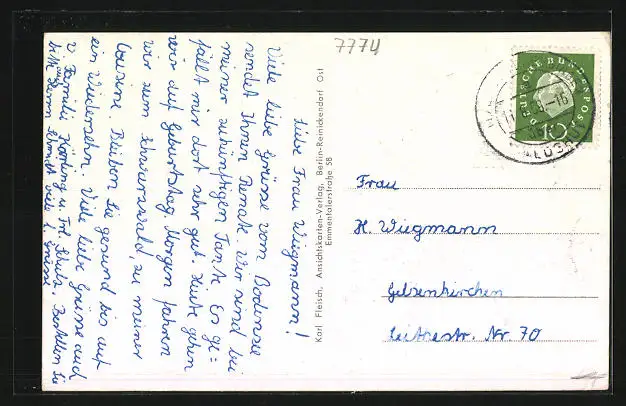 7774
Liebe Frau Wiegmann!
Viele liebe Grüsse vom Bodensee
sendet Ihnen Renate. Wir sind bei
meiner zukünftigen Tante. Es ge-
fällt mir dort sehr gut. Heute gehen
wir auf Geburtstag. Morgen fahren
wir zum Schwarzwald, zu meiner
Cousine. Bleiben Sie gesund bis auf
ein Wiedersehn. Viele liebe Grüsse auch
v. Familie u. Frl. Schulz. Bestellen Sie
bitte Herrn Schmidt viele l. Grüsse.
Karl Fleisch, Ansichtskarten-Verlag, Berlin-Reinickendorf Ost
Emmentalerstraße 58
DEUTSCHE BUNDESPOST
10
Frau
H. Wiegmann
Gelsenkirchen
Nr. 70